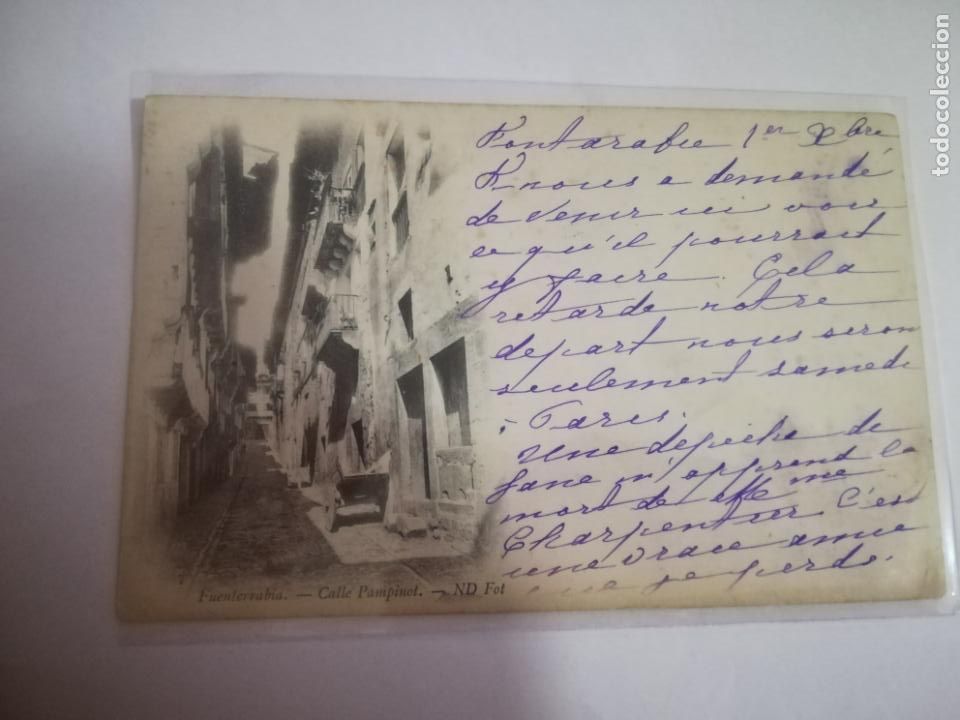 Fontarabie 1er Xbre
K nous a demandé
de venir ici voir
ce qu'il pourrait
y faire. Cela
retarde notre
depart nous seron
seulement samedi
Paris.
Une depeche de
Jane m'apprend la
mort de Mme
Charpentier c'est
une vraie amie
que je perds.
Fuenterrabia. — Calle Pampinot. — ND Fot
todocoleccion